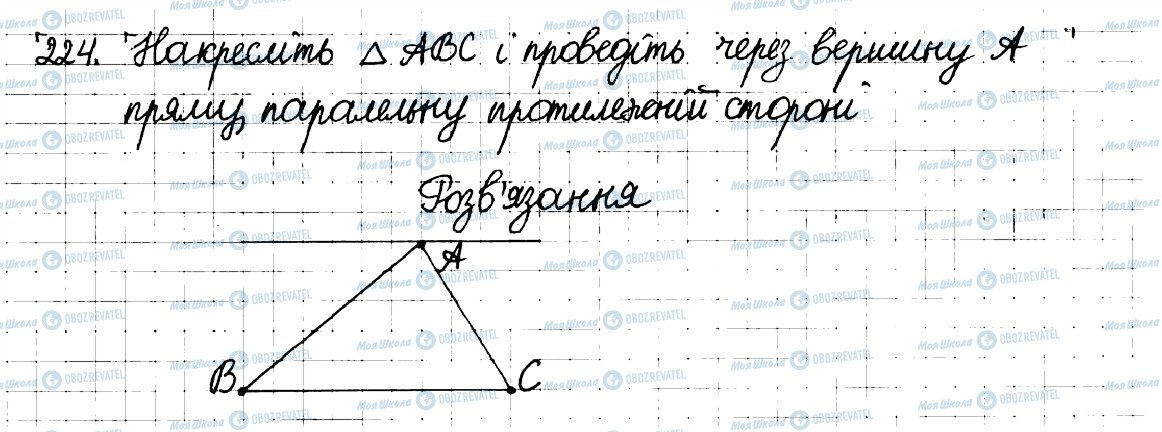 224. Накресліть △ ABC і проведіть через вершину A
пряму, паралельну протилежній стороні
Розв'язання
A
B
C